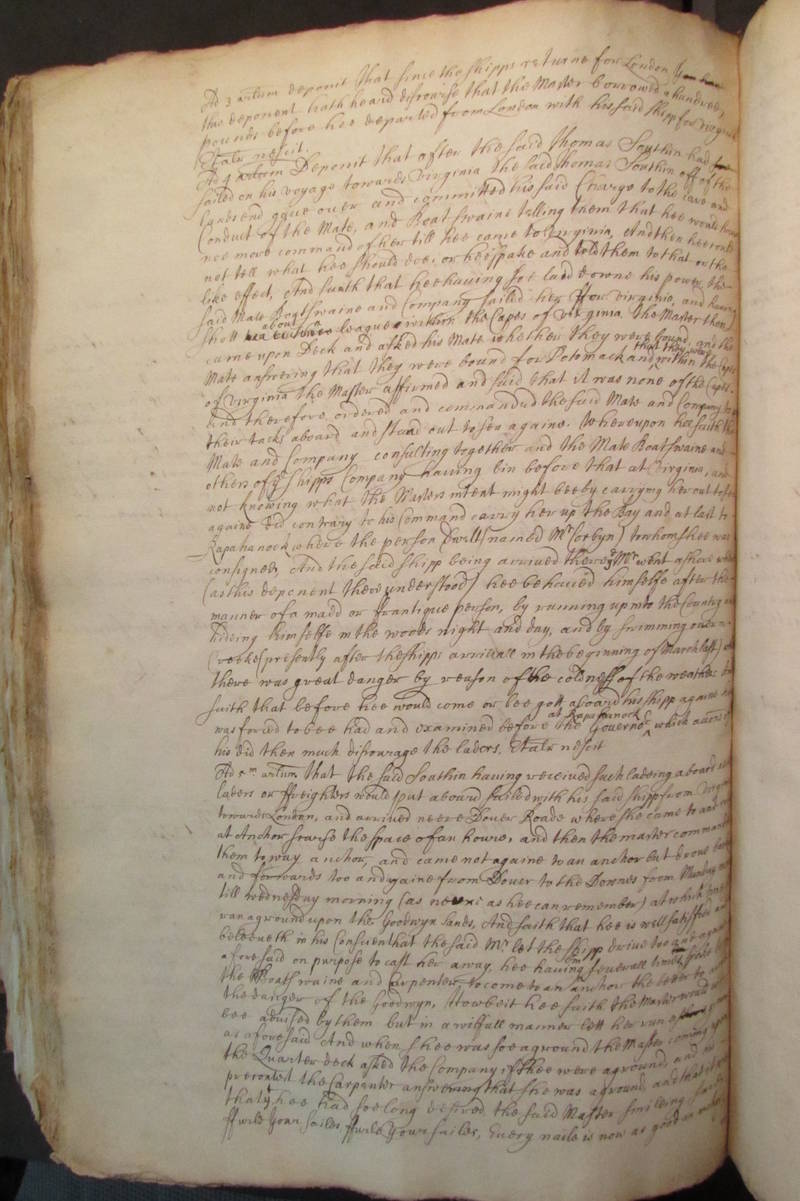 Ad 3 artum deponit that since the shipps returne for London
this deponent hath heard discourse that the Master borrowed a hundred
pounds before hee departed from London with his said shipp for Virginia
Et alr nescit.
Ad 4 artum Deponit that after the said Thomas Southin had
sailed on his voyage towards Virginia the said Thomas Southin off of the
Lands end gave over and committed his said Charge to the care and
Conduct of the Mate, and Boatswaine telling them that hee would have
noe more command of her till hee came to Virginia, And then hee could
not tell what hee should doe, or hee spake and told them to that or the
like effect, And saith that hee having soe layd downe his power the
said Mate Boatswaine and Company sailed her ffor Virginia, and having
shott about leagues within the Capes of Virginia the Master then
came upon Deck and asked his Mate whether they were bound, and the
Mate answering that they were bound for Potomack and that they were within the Capes
of Virginia the Master affirmed and said that it was none of the Capes
And therefore ordered and commanded the said Mate and Company to
their tacks aboard and stand out to sea againe. Whereupon hee saith the
Mate and Company consulting together and the Mate Boatswaine and
others of ye shipps Company having bin before that at Virginia, and
not knowing what the Masters intent might bee by carrying her out to sea
againe did contrary to his Command carry her up the Bay and at last to
Rapahanock where the person dwells (named Mr Corbyn) to whom shee was
consigned, And the said shipp being arrived there ye Mr went ashore where
(as this deponent there understood) hee behaved himselfe after the
manner of a madd or ffrantique person, by running up into the Country and
hideing himselfe in the woods night and day, and by swimming over a
Creeke (presently after the shipps arrivall in the beginning of March last)
there was great danger by reason of the coldness of the weather
saith that before hee would come or bee gott aboard his shipp againe
was forced to bee had and examined before the Governor at Rapahanock, which
his did then much discourage the laders. Et alr nescit
Ad 5m artum that the said Southin having received such ladeing aboard
laders or ffreighters would putt aboard sailed with his said shipp from Virginia
towards London, and arrived neere Dover Roade where shee came to and
at Anchor scarse the space of an houre, and then the master commanded
them to way anchor, and came not againe to an anchor but drove
and forwards too and againe from Dover to the Downes from Munday
till wednesday morning (as neere as hee can remember) at which time
ran aground upon the Goodwyn Sands, And saith that hee is well satisfied and
beleeveth in his Conscience that the said Mr let the shipp drive too and againe
aforesaid on purpose to cast her away, hee having severall times
the Boatswaine and Carpenter to come to an anchor the better to
the danger of the Goodwyn, Howbeit hee saith the Master would
bee advised by them but in a wilfull manner lett her run
as aforesaid And when shee was soe aground the Master coming
the Quarter deck asked the Company if shee were aground, and
the Carpenter answering that she was aground and that
that hee had soe long desired the said Master smileing
ffurle your sailes ffurle your sailes, Every naile is now as good as